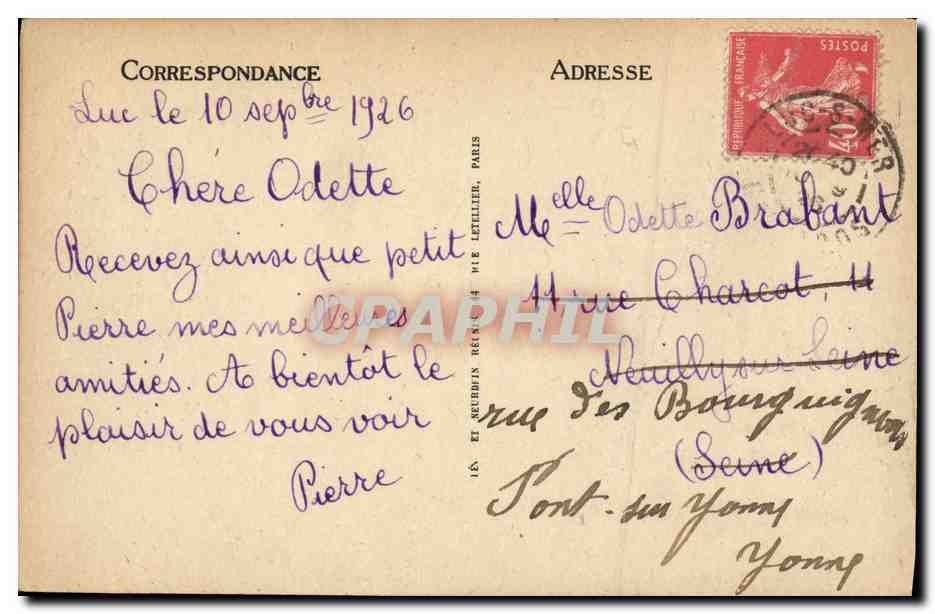 CORRESPONDANCE
Luc le 10 sepbre 1926
Chére Odette
Recevez ainsi que petit
Pierre mes meilleures
amitiés. A bientôt le
plaisir de vous voir
Pierre
LETELLIER, PARIS
ADRESSE
REPUBLIQUE FRANÇAISE
POSTES
40
Melle Odette Brabant
11 rue Charcot, 11
Neuilly sur Seine
rue des Bourguignons
(Seine)
Pont-sur Yonne
Yonne
CPAPHIL